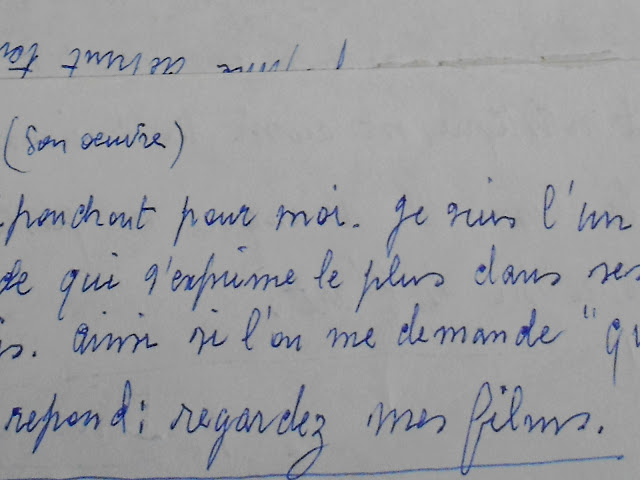 (Son oeuvre)
pour moi. Je suis l'un
de qui s'exprime le plus dans ses
ainsi si l'on me demande "qu
repond: regardez mes films.